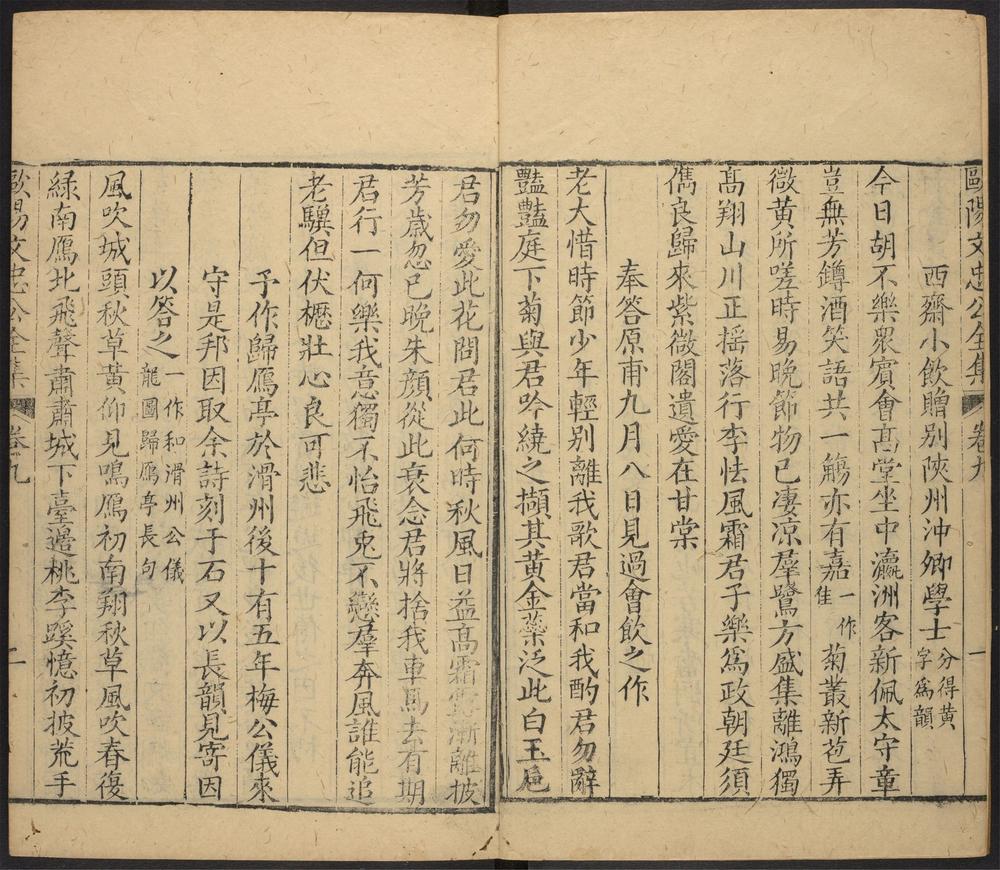 歐陽文忠公全集 卷九 一
西齋小飲贈別陝州沖卿學士 分得黃字爲韻
今日胡不樂衆賓會髙堂坐中瀛洲客新佩太守章
豈無芳鐏酒笑語共一觴亦有嘉 一作佳 菊叢新苞弄
微黃所嗟時易晚節物已凄凉羣鷺方盛集離鴻獨
髙翔山川正揺落行李怯風霜君子樂爲政朝廷須
儁良歸來紫微閣遺愛在甘棠
奉答原甫九月八日見過會飲之作
老大惜時節少年輕别離我歌君當和我酌君勿辭
豔豔庭下菊與君吟繞之擷其黃金蘂泛此白玉巵
君勿愛此花問君此何時秋風日益髙霜 漸離披
芳歲忽已晚朱顔從此衰念君將捨我車馬去有期
君行一何樂我意獨不怡飛兎不戀羣奔風誰能追
老驥但伏櫪壯心良可悲
予作歸鴈亭於滑州後十有五年梅公儀來
守是邦因取余詩刻于石又以長韻見寄因
以答之 一作和滑州公儀龍圖歸鴈亭長句
風吹城頭秋草黃仰見鳴鴈初南翔秋草風吹春復
緑南鴈北飛聲肅肅城下臺邉桃李蹊憶初披荒手
歐陽文忠公全集 卷九 二